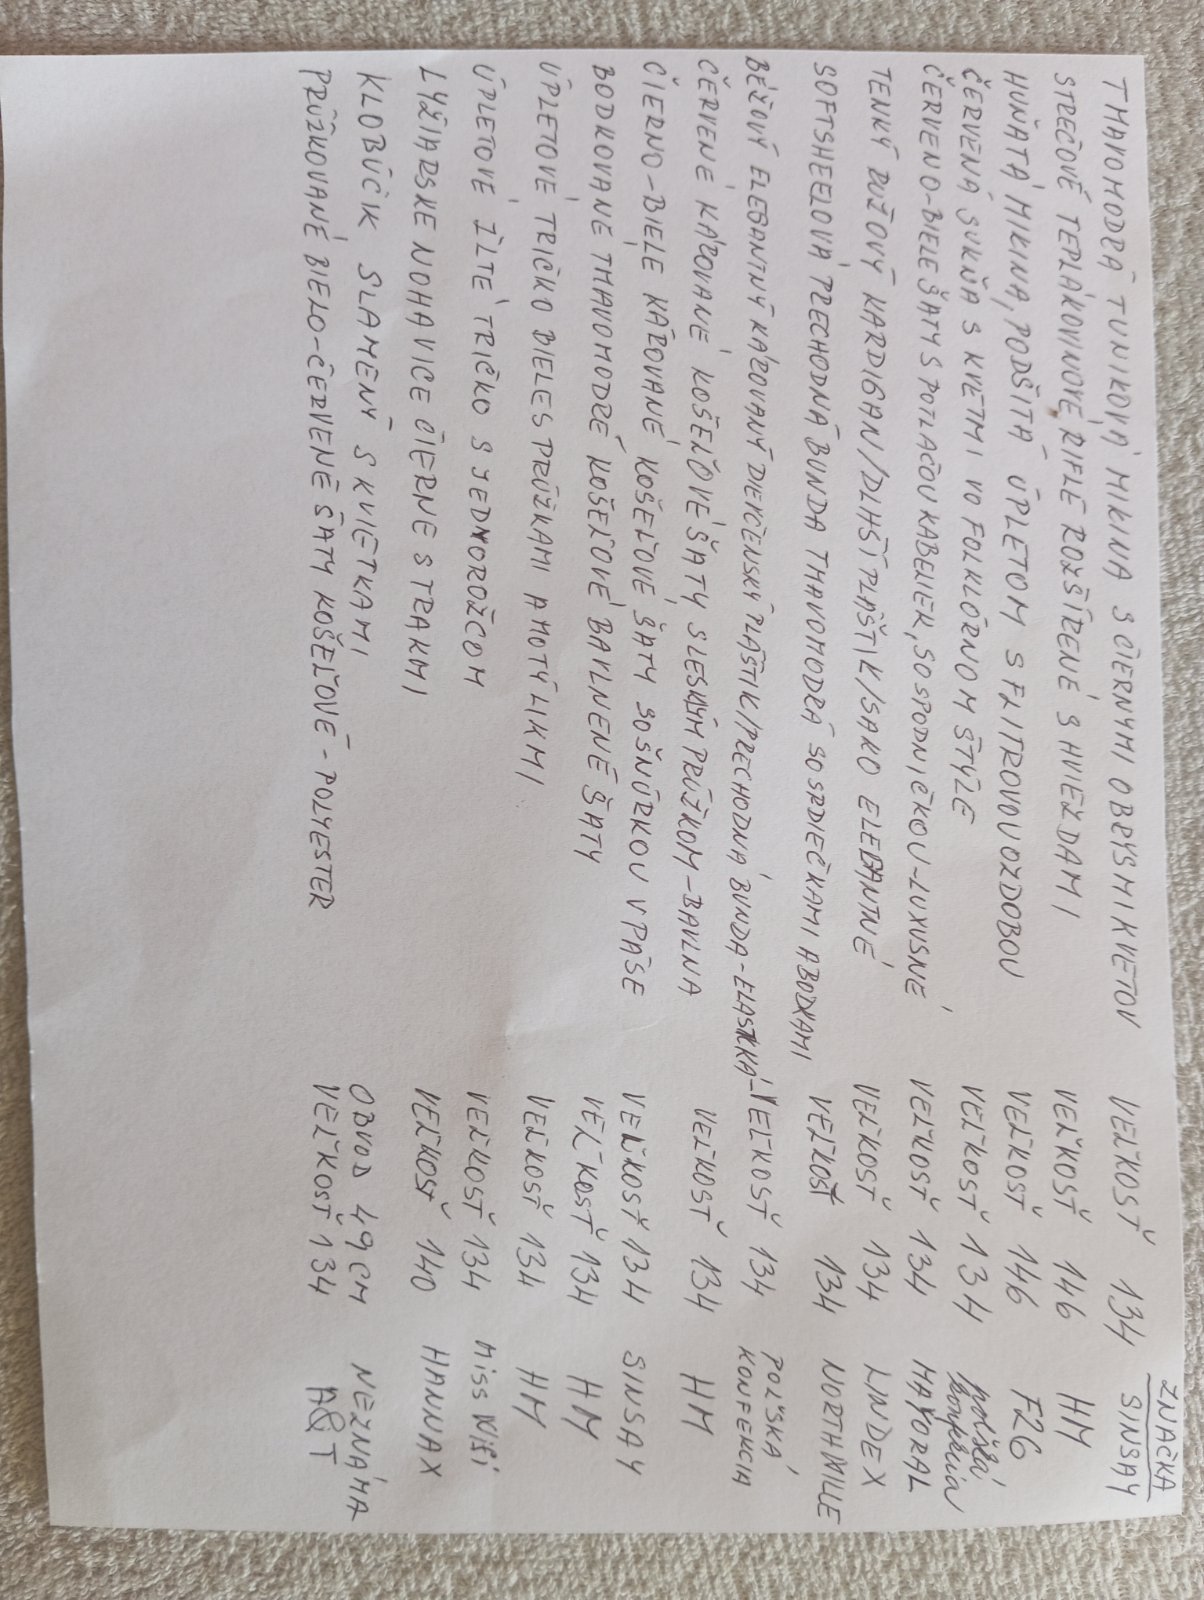 ZNAČKA
TMAVOMODRÁ TUNIKOVÁ MIKINA S ČIERNYMI OBRYSMI KVETOV VEĽKOSŤ 134 SINSAY
STREČOVÉ TEPLÁKOVINOVÉ RIFLE ROZŠÍRENÉ S HVIEZDAMI VEĽKOSŤ 146 HM
HUŇATÁ MIKINA, PODŠITÁ ÚPLETOM S FLITROVOU OZDOBOU VEĽKOSŤ 146 F26
ČERVENÁ SUKŇA S KVETMI VO FOLKLÓRNOM ŠTÝLE VEĽKOSŤ 134 poľská konfekcia
ČERVENO-BIELE ŠATY S POTLAČOU KABELIEK, SO SPODNIČKOU-LUXUSNÉ VEĽKOSŤ 134 MAYORAL
TENKÝ RUŽOVÝ KARDIGAN/DLHŠÍ PLÁŠTIK/SAKO ELEGANTNÉ VEĽKOSŤ 134 LINDEX
SOFTSHEELOVÁ PRECHODNÁ BUNDA TMAVOMODRÁ SO SRDIEČKAMI A BODKAMI VEĽKOSŤ 134 NORTHVILLE
BÉŽOVÝ ELEGANTNÝ KÁROVANÝ DIEVČENSKÝ PLÁŠTIK/PRECHODNÁ BUNDA-ELASTICKÁ-VEĽKOSŤ 134 POĽSKÁ KONFEKCIA
ČERVENÉ KÁROVANÉ KOŠEĽOVÉ ŠATY S LESKLÝM PRÚŽKOM-BAVLNA VEĽKOSŤ 134 HM
ČIERNO-BIELE KÁROVANÉ KOŠEĽOVÉ ŠATY SO ŠNÚRKOU V PÁSE VEĽKOSŤ 134 SINSAY
BODKOVANÉ TMAVOMODRÉ KOŠEĽOVÉ BAVLNENÉ ŠATY VEĽKOSŤ 134 HM
ÚPLETOVÉ TRIČKO BIELE S PRÚŽKAMI A MOTÝLIKMI VEĽKOSŤ 134 HM
ÚPLETOVÉ ŽLTÉ TRIČKO S JEDNOROŽCOM VEĽKOSŤ 134 Miss
LYŽIARSKE NOHAVICE ČIERNE S TRAKMI VEĽKOSŤ 140 HANNAX
KLOBÚČIK SLAMENÝ S KVIETKAMI OBVOD 49 CM NEZNÁMA
PRÚŽKOVANÉ BIELO-ČERVENÉ ŠATY KOŠEĽOVÉ-POLYESTER VEĽKOSŤ 134 A&T